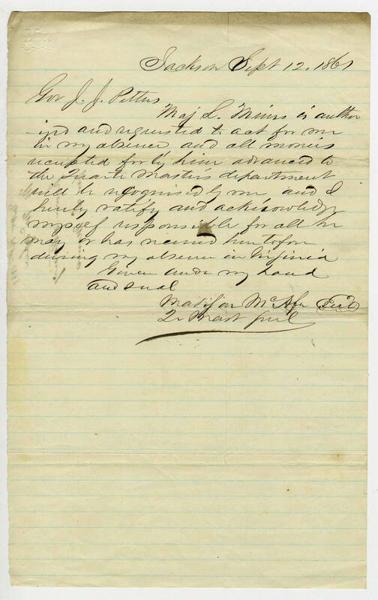 Jackson Sept 12. 1861
Gov J. J. Pettus
Maj L. Mims is author
ised and requested to act for me
in my absence and all monies
receipted for by him advanced to
the Quarter Masters department
will be recognised by me and I
hereby ratify and acknowledge
myself responsible for all he
may or has received heretofore
during my absence in Virginia
Given under my hand
and seal
Madison McAfee Seal
Qr Mast Genl